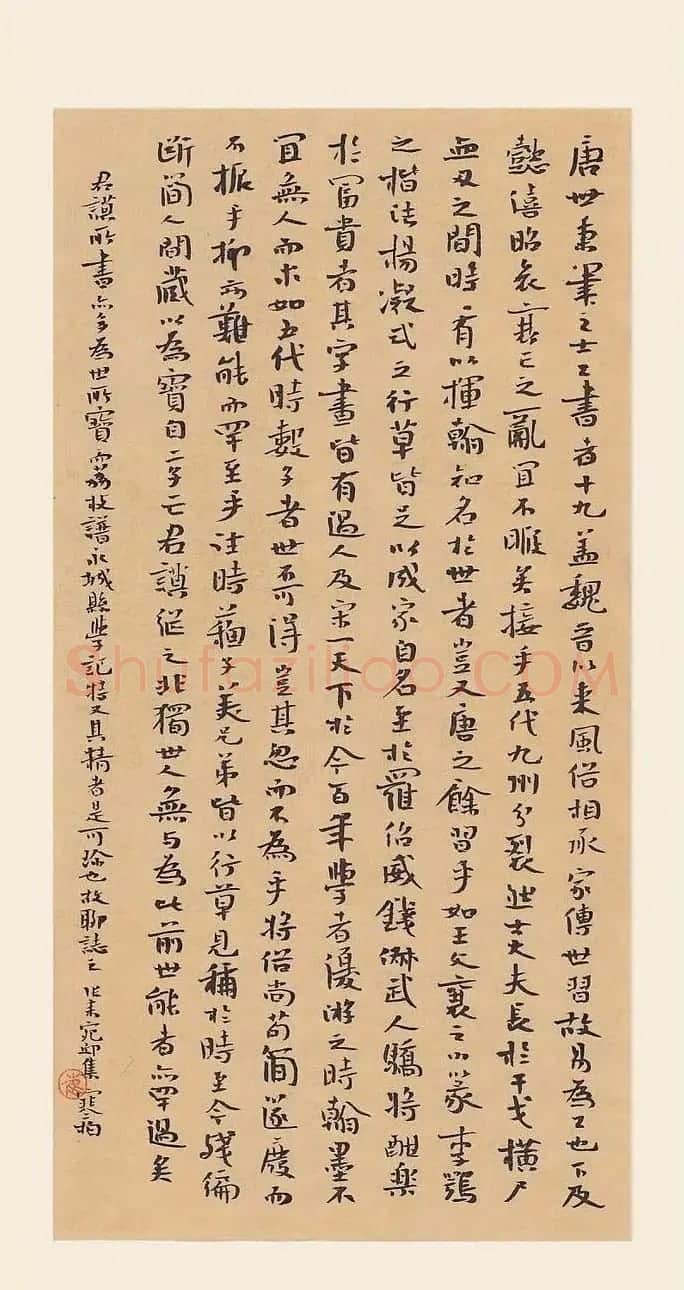 唐世秉筆之士工書者十九盖魏晉以来風俗相承家傳世習故易為工也下及
懿僖昭哀衰亡之亂宜不暇矣接乎五代九州分裂然士大夫長於干戈橫尸
血刃之間時時有以揮翰知名於世者豈又唐之餘習乎如王文襄之小篆李鶚
之楷法楊凝式之行草皆足以成家自名至於羅紹威錢俶武人驕將酣樂
於冨貴者其字畫皆有過人及宋一天下於今百年學者優游之時翰墨不
宜無人而求如五代時數子者世不可得豈其忽而不為乎將俗尚苟簡遂廢而
不振乎抑亦難能而罕至乎往時蘇子美兄弟皆以行草見稱於時至今殘編
断簡人間藏以為寶自二子亡君謨継之非獨世人無与為比前世能者亦罕過矣
君謨所書亦多為世所寶而荔枝譜永城縣學記特又其精者是可珍也故聊誌之 張耒宛邱集
Shufaziliao.COM